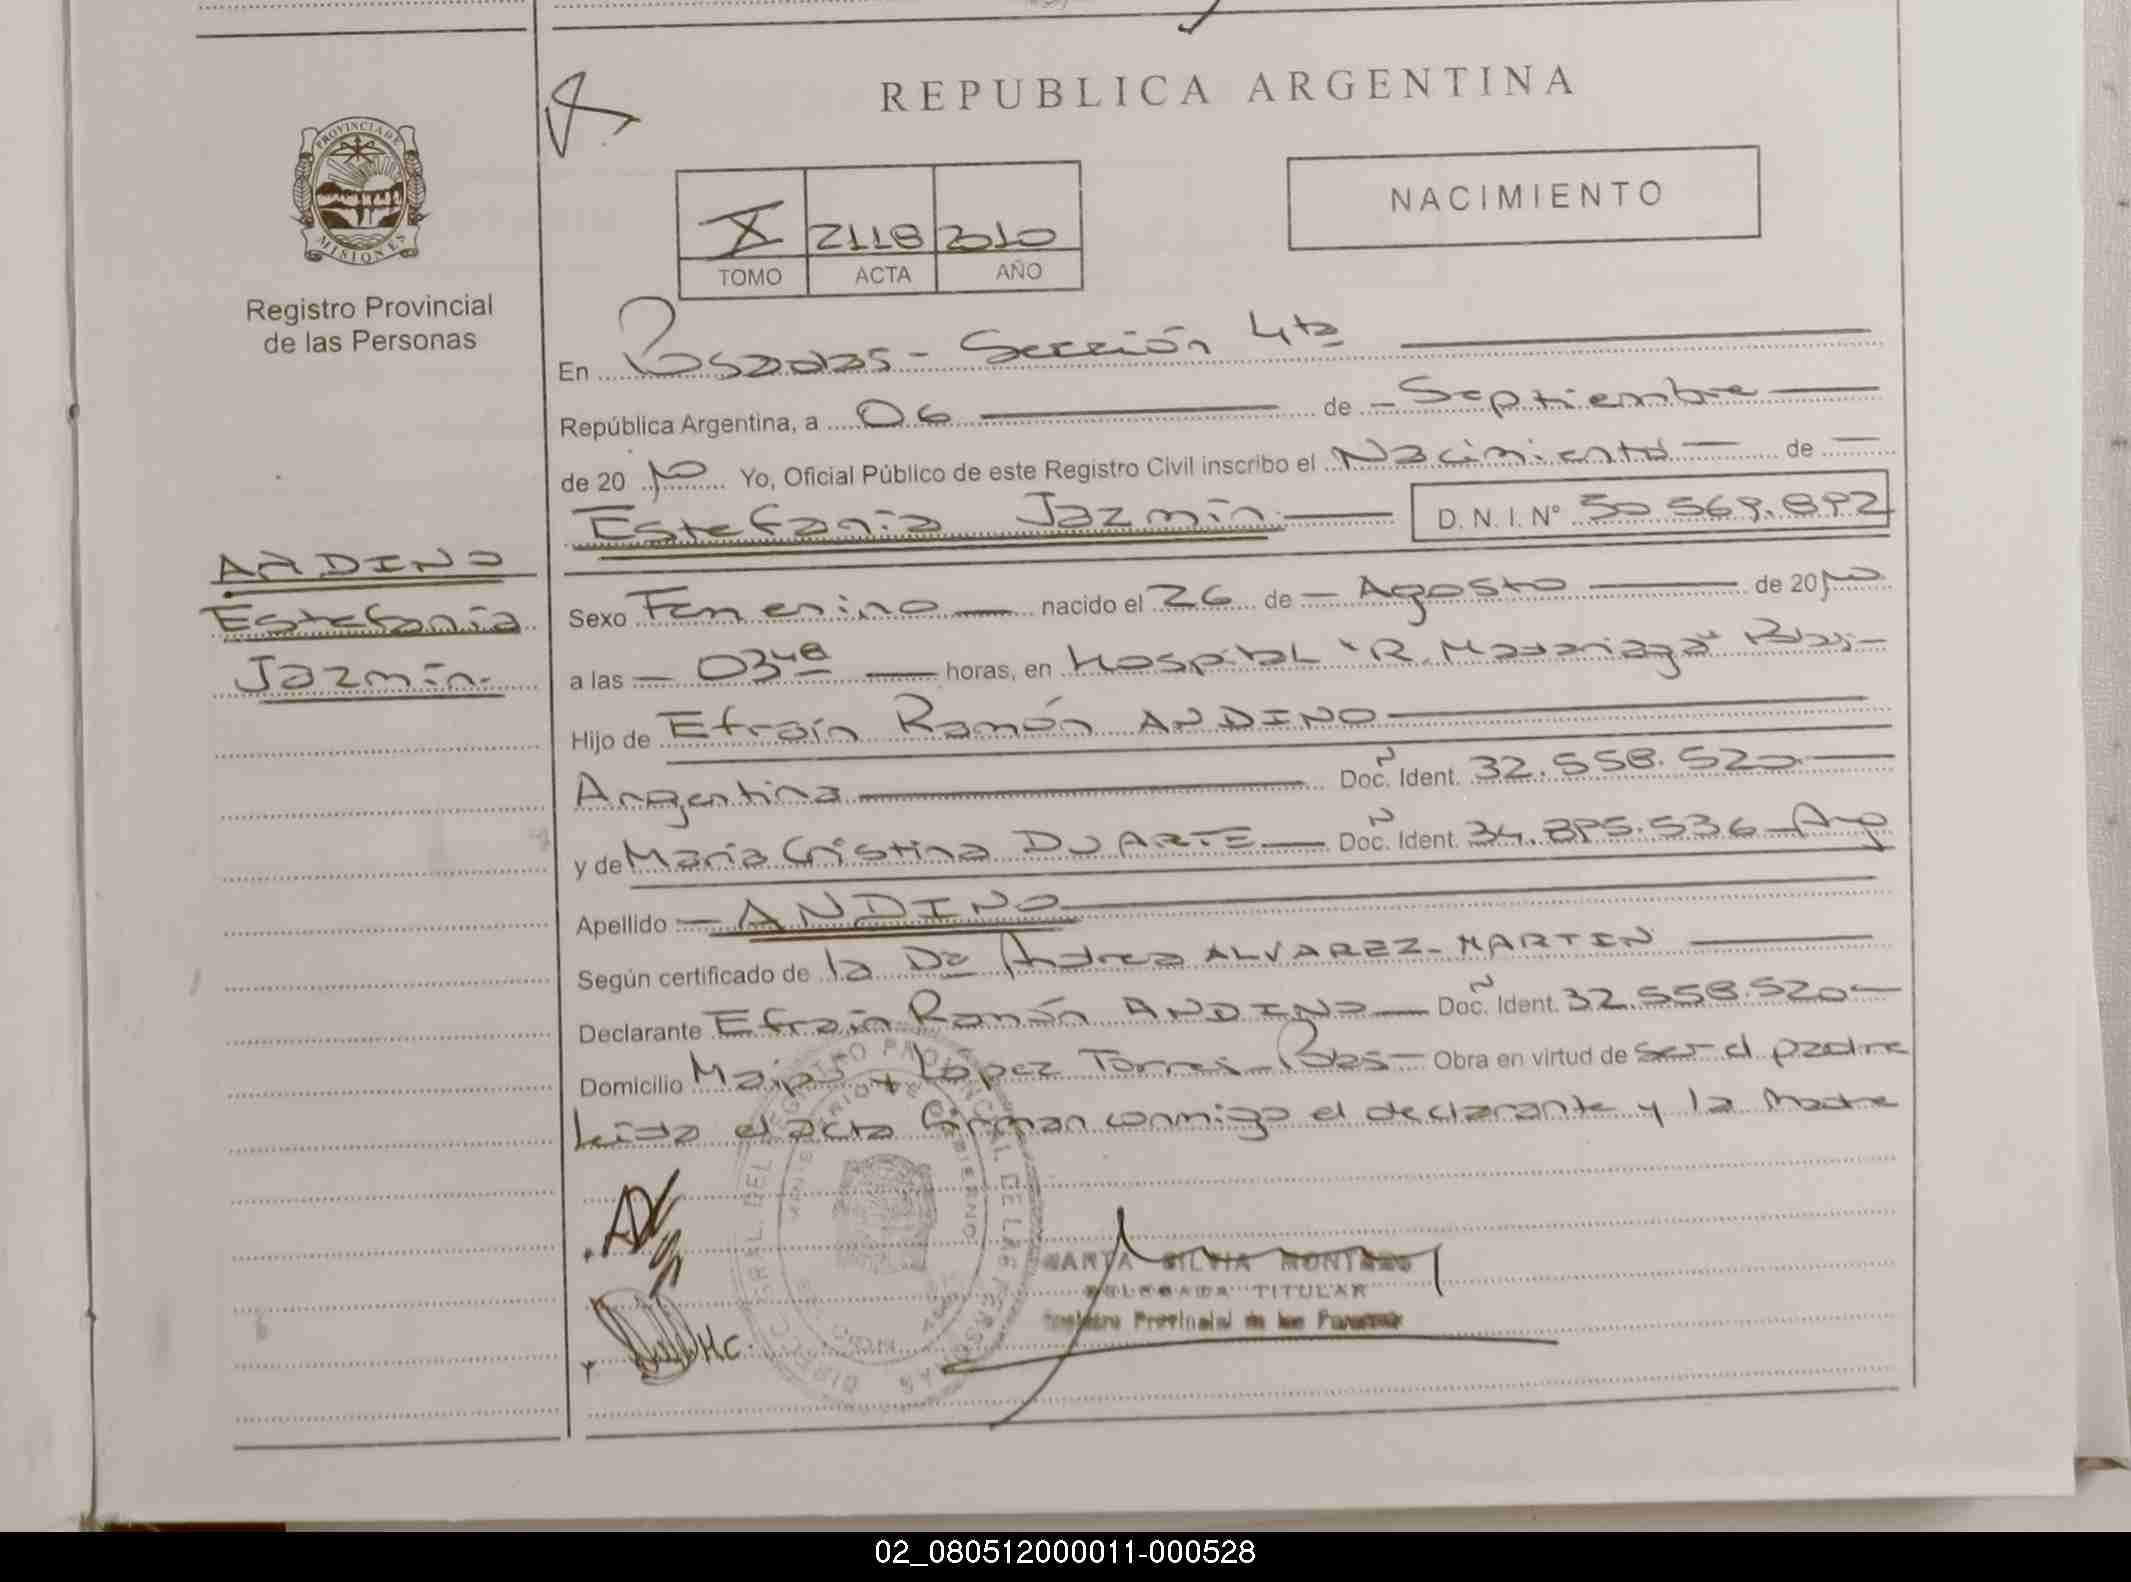 REPUBLICA ARGENTINA
PROVINCIA DE
MISIONES
Registro Provincial
de las Personas
NACIMIENTO
X 2118 2010
TOMO ACTA AÑO
En Posadas - Sección 4ta
República Argentina, a 06 de - Septiembre
de 2010 Yo, Oficial Público de este Registro Civil inscribo el Nacimiento de
Estefania Jazmín D. N. I. N° 50.569.892
ANDINO
Estefanía
Jazmín.
Sexo Femenino nacido el 26 de Agosto de 2010
a las 03 horas, en Hospital "R. Madariaga"
Hijo de Efraín Ramón ANDINO
Argentina Doc. N Ident. 32.558.520
y de Maria Cristina DUARTE Doc. N Ident. 34.895.536 Arg
Apellido ANDINO
Según certificado de la Dra Andrea ALVAREZ-MARTIN
Declarante Efraín Ramón ANDINO Doc. N Ident. 32.558.520
Domicilio Maipú y López Torres - Pdas Obra en virtud de ser el padre
Leída el acta firman conmigo el declarante y la Madre
DIREC. GRAL. DEL REGISTRO PROVINCIAL DE LAS PERSONAS
MINISTERIO DE GOBIERNO
SILVIA
DELEGADA TITULAR
Registro Provincial de las Personas
MC.
02_080512000011-000528